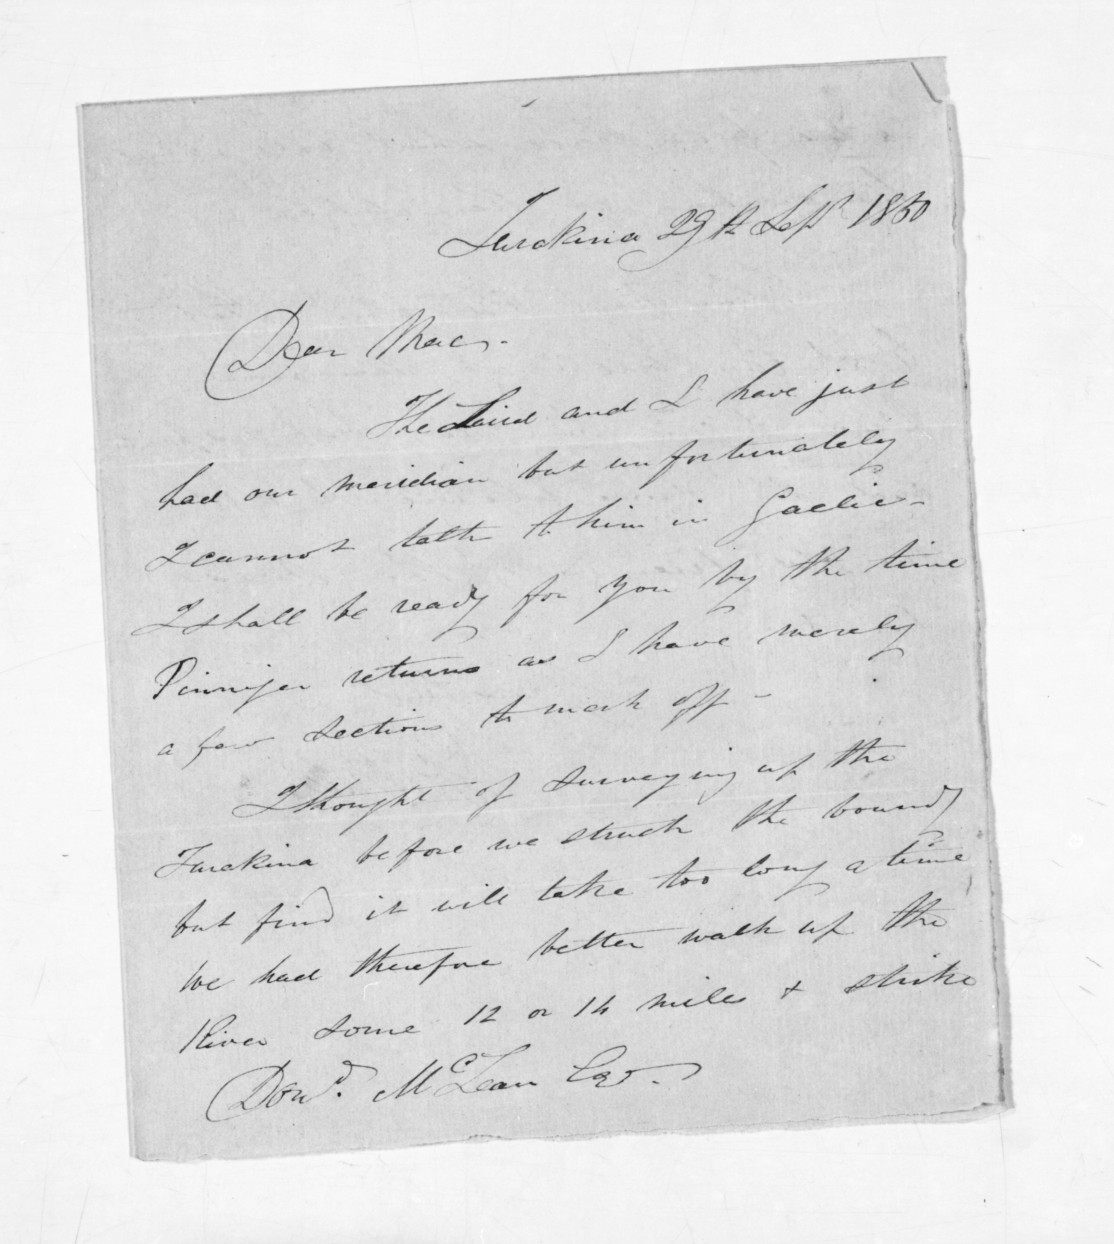 Turakina 29th Sepr 1850
Dear Mac,
The Laird and I have just
had our meridian but unfortunately
I cannot talk to him in Gaelic -
I shall be ready for you by the time
Pinniger returns as I have merely
a few sections to mark off -
I thought of surveying up the
Turakina before we struck the boundy
but find it will take too long a time
We had therefore better walk up the
River some 12 or 14 miles & strike
Dond. McLean Esqr.